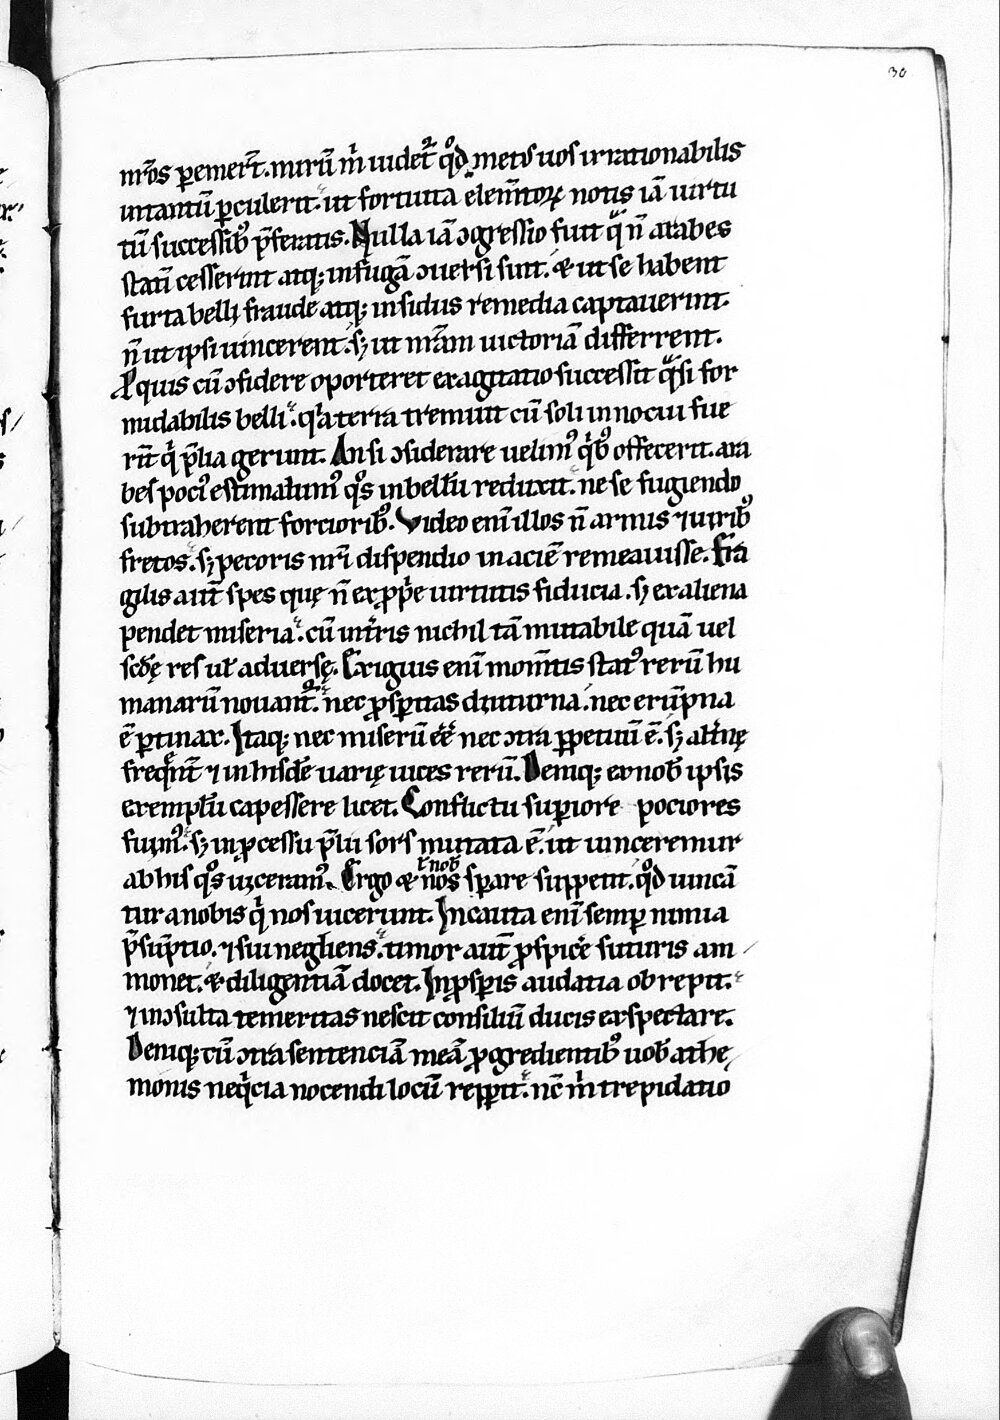 30
nr̄os ꝑemer̄t. mirū m̄ uidet᷑ qd̊ met᷒ uos irrationabilis
intantū ꝑculerit. ut fortuita elem̄torꝝ notis iā uirtu
tū successib᷒ p̄feratis. Nulla iā ↄgressio fuit qͣ n̄ arabes
statī cesserint atq; in fugā ↄuersi sint. & ut se habent
furta belli fraude atq; insidiis remedia captauerint.
n̄ ut ipsi uincerent. sꝫ ut nr̄am uictoriā differrent.
A quis cū ↄfidere oporteret exagitatio successit qͣsi for
midabilis belli. qͥa terra tremuit cū soli innocui fue
rīt qͥ p̄lia gerunt. An si ↄsiderare uelim᷒ qͥb᷒ offecerit. ara
bes poci᷒ estimabim᷒ qͦs in bellū reduxit. ne se fugiendo
subtraherent forciorib᷒. Video enī illos n̄ armis ⁊ uirib᷒
fretos. sꝫ pecoris nr̄i dispendio in aciē remeauisse. Fra
gilis aut̄ spes quę n̄ ex ꝓpͥe uirtutis fiducia. sꝫ ex aliena
pendet miseria. cū int̄ris nichil tā mutabile quā uel
scd̄ę res uł aduersę. Exiguis enī mom̄tis stat᷒ rerū hu
manarū nouant᷑. nec ꝓsperitas diuturna. nec erūpna
ē ꝑtinax. Itaq; nec miserū eē nec ↄtra ꝑpetuū ē. sꝫ alt̄nę
freqͣnt̄ ⁊ in hisdē uarię uices rerū. Deniq; ex nob̄ ipsis
exemplū capessere licet. Conflictu suꝑiore pociores
fuim᷒. sꝫ in ꝓcessu p̄lii sors mutata ē. ut uinceremur
ab his qͦs uiceram᷒. Ergo & nos sperare suppetit. qd̊ uincā
⁊ nob̄
tur a nobis qͥ nos uicerunt. Incauta enī semꝑ nimia
p̄sūptio. ⁊ sui negliens. timor aut̄ ꝓspicͤe futuris am
monet. & diligentiā docet. In ꝓsꝑis audatia obrepit.
⁊ inↄsulta temeritas nescit consiliū ducis exspectare.
Deniq; cū ↄtra sentenciā meā ꝓgredientib᷒ uob̄ athe
monis neqͥcia nocendi locū repperit. nc̄ m̄ trepidatio